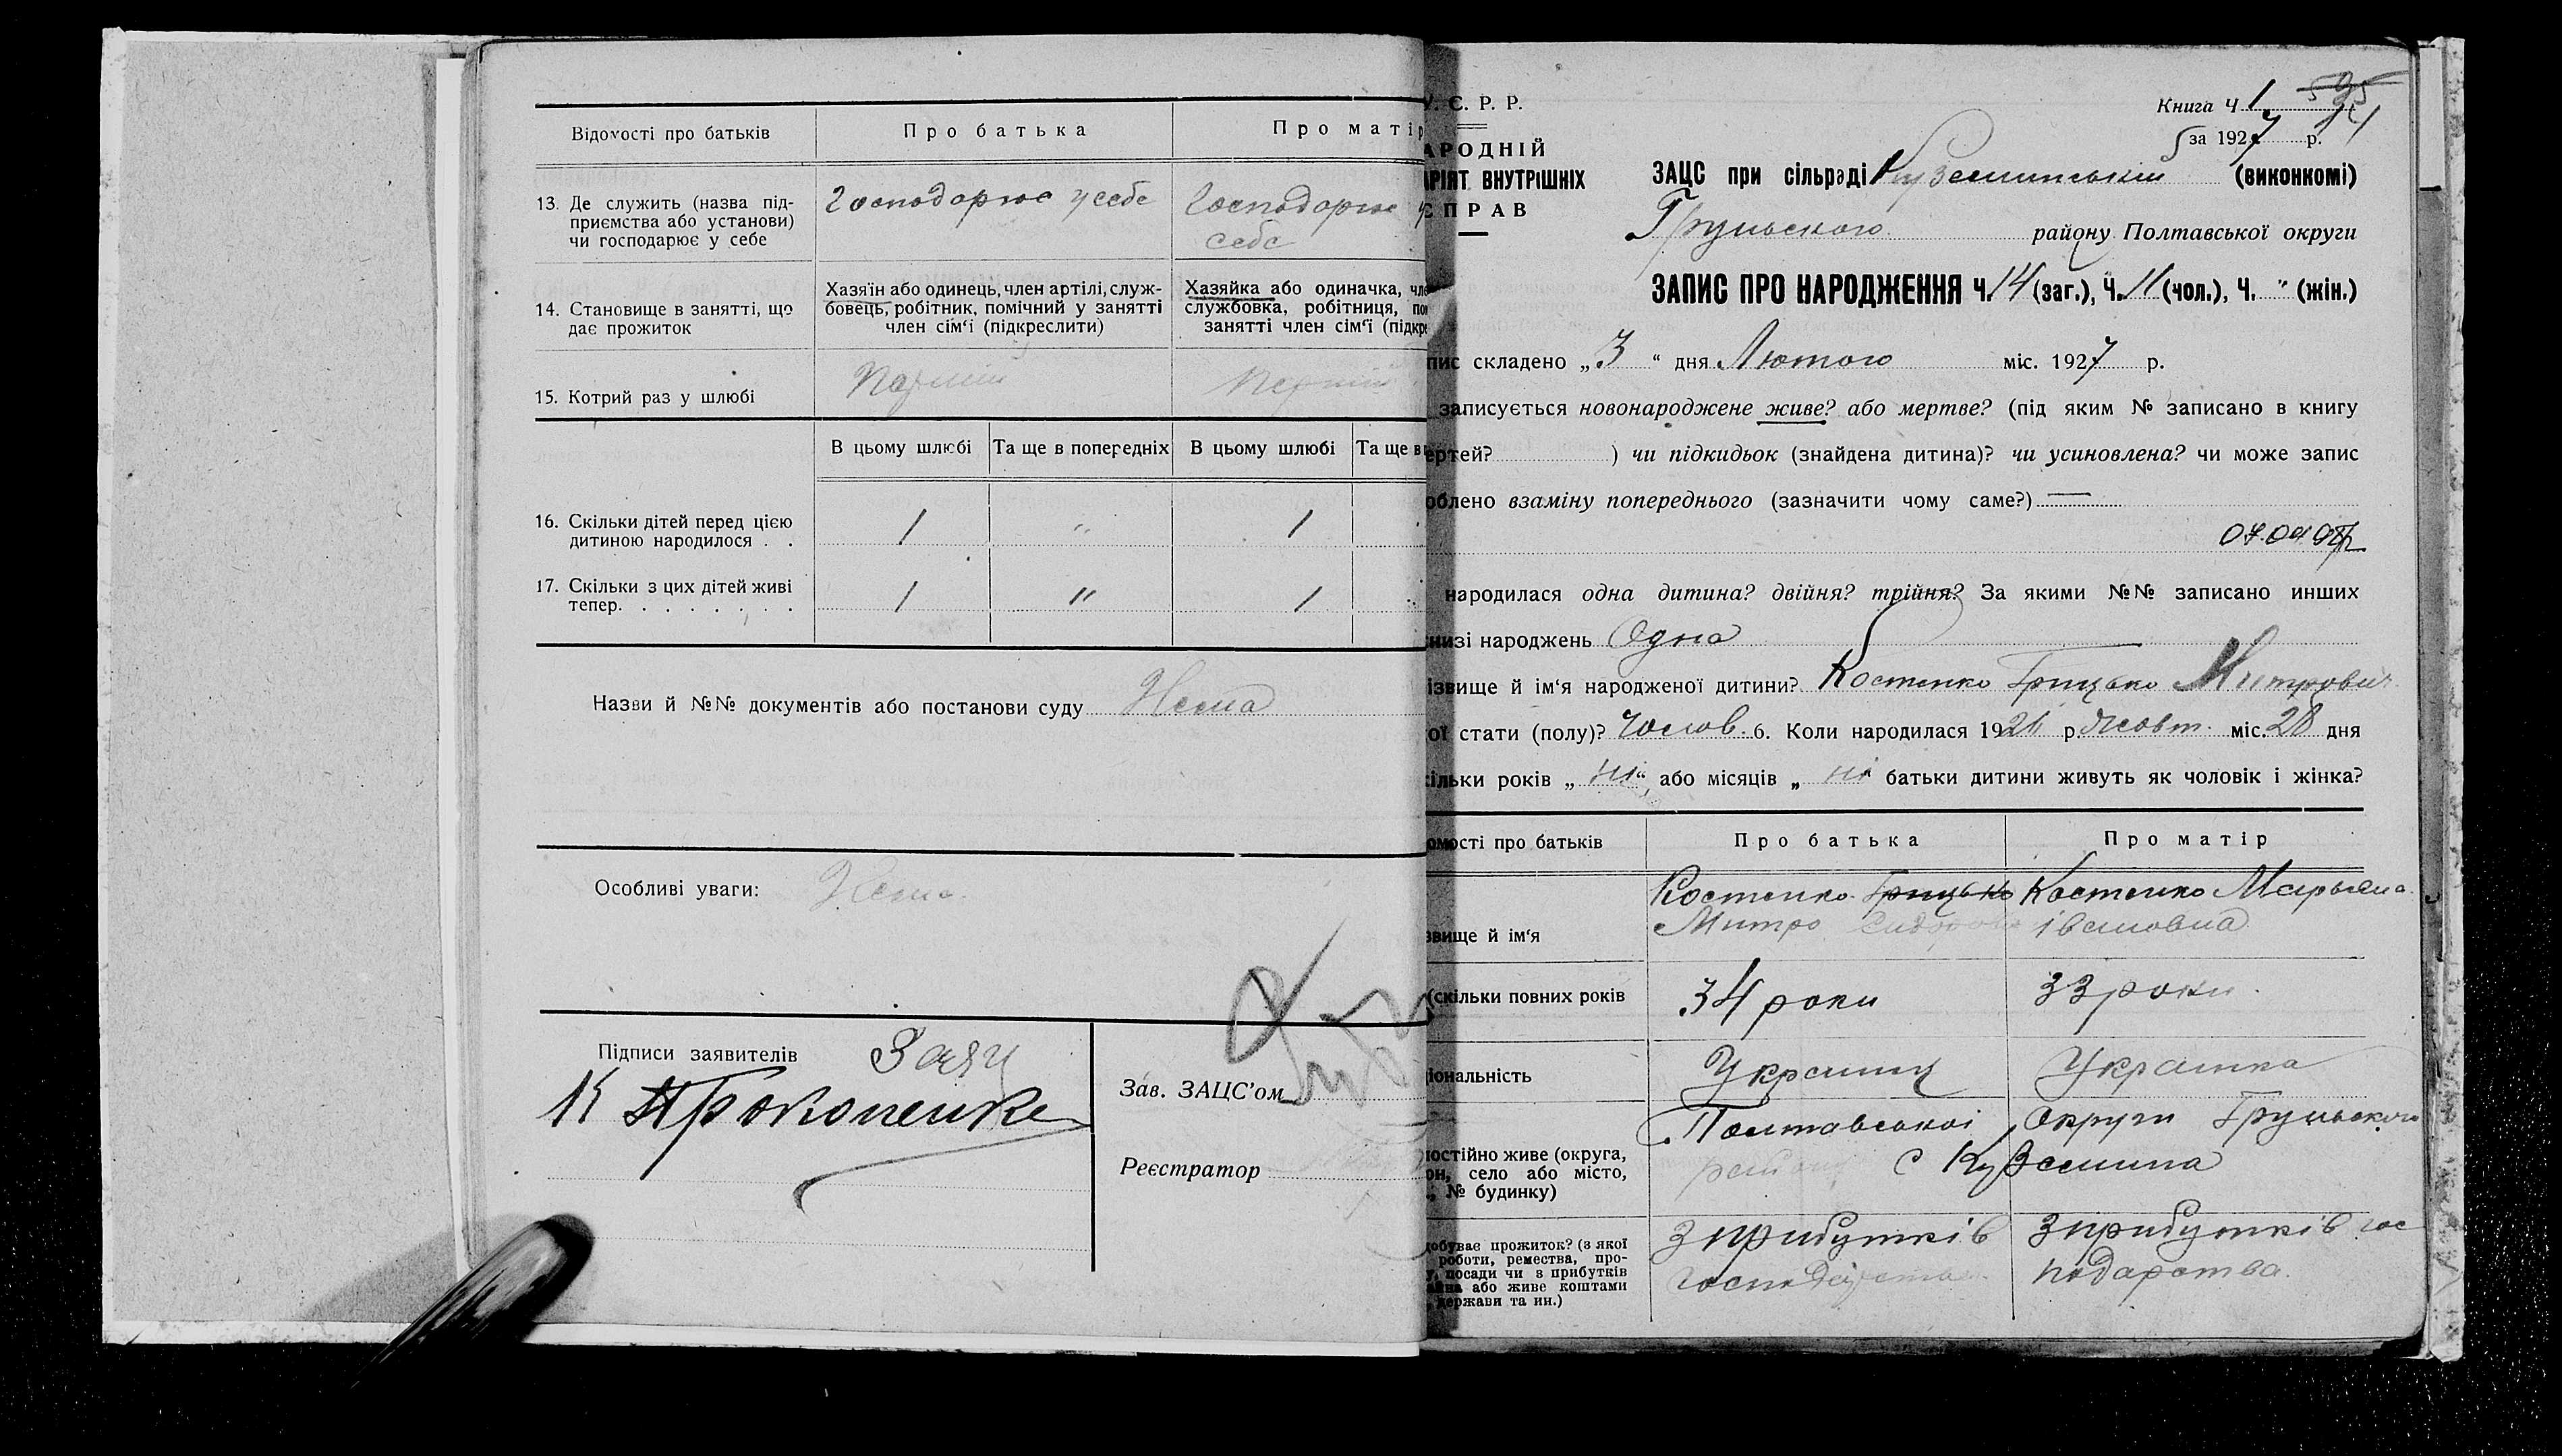 Відомості про батьків
Про батька
Про матір
13. Де служить (назва під-
приємства або установи)
чи господарює у себе
Господарює у себе
Господарює у
себе
14. Становище в занятті, що
дає прожиток
Хазяїн або одинець, член артілі, служ-
бовець, робітник, помічний у занятті
член сім‘ї (підкреслити)
Хазяйка або одиначка, чле
службовка, робітниця, по
занятті член сім‘ї (підкре
15. Котрий раз у шлюбі
Перший
Перший
В цьому шлюбі
Та ще в попередніх
В цьому шлюбі
Та ще в
16. Скільки дітей перед цією
дитиною народилося . .
1 " 1
17. Скільки з цих дітей живі
тепер. . . . . . . .
1 " 1 "
Назви й №№ документів або постанови суду Нема
Особливі уваги: Нема
Підписи заявителів Заяц
К Прокопенко
Зав. ЗАЦС’ом
Реєстратор
У. С. Р. Р.
АРОДНІЙ
АРІЯТ ВНУТРІШНІХ
СПРАВ
Книга Ч 1
за 1927 р.
34
ЗАЦС при сільраді Куземинській (виконкомі)
Груньського району Полтавської округи
ЗАПИС ПРО НАРОДЖЕННЯ Ч. 14 (заг.), Ч. 11 (чол.), Ч. " (жін.)
пис складено „3“ дня Лютого міс. 1927 р.
записується новонароджене живе? або мертве? (під яким № записано в книгу
ертей? ) чи підкидьок (знайдена дитина)? чи усиновлена? чи може запис
облено взаміну попереднього (зазначити чому саме?) —
народилася одна дитина? двійня? трійня? За якими №№ записано инших
низі народжень Одна
ізвище й ім‘я народженої дитини? Костенко Грицько Митрович
ої стати (полу)? Чолов. 6. Коли народилася 1926 р. Жовт. міс. 28 дня
ільки років „ні“, або місяців „ні“ батьки дитини живуть як чоловік і жінка?
омості про батьків
Про батька
Про матір
звище й ім‘я
Костенко Грицько
Митро Сидорович
Костенко Марьяна
Івановна
(скільки повних років
34 роки
33 роки.
іональність
Украинц
Украинка
постійно живе (округа,
он, село або місто,
., № будинку)
Полтавської округи Груньского
району с Куземина
добуває прожиток? (з якої
роботи, ремества, про-
у, посади чи з прибутків
айна або живе коштами
держави та ин.)
З прибутків
господарства
З прибутків гос
подарства